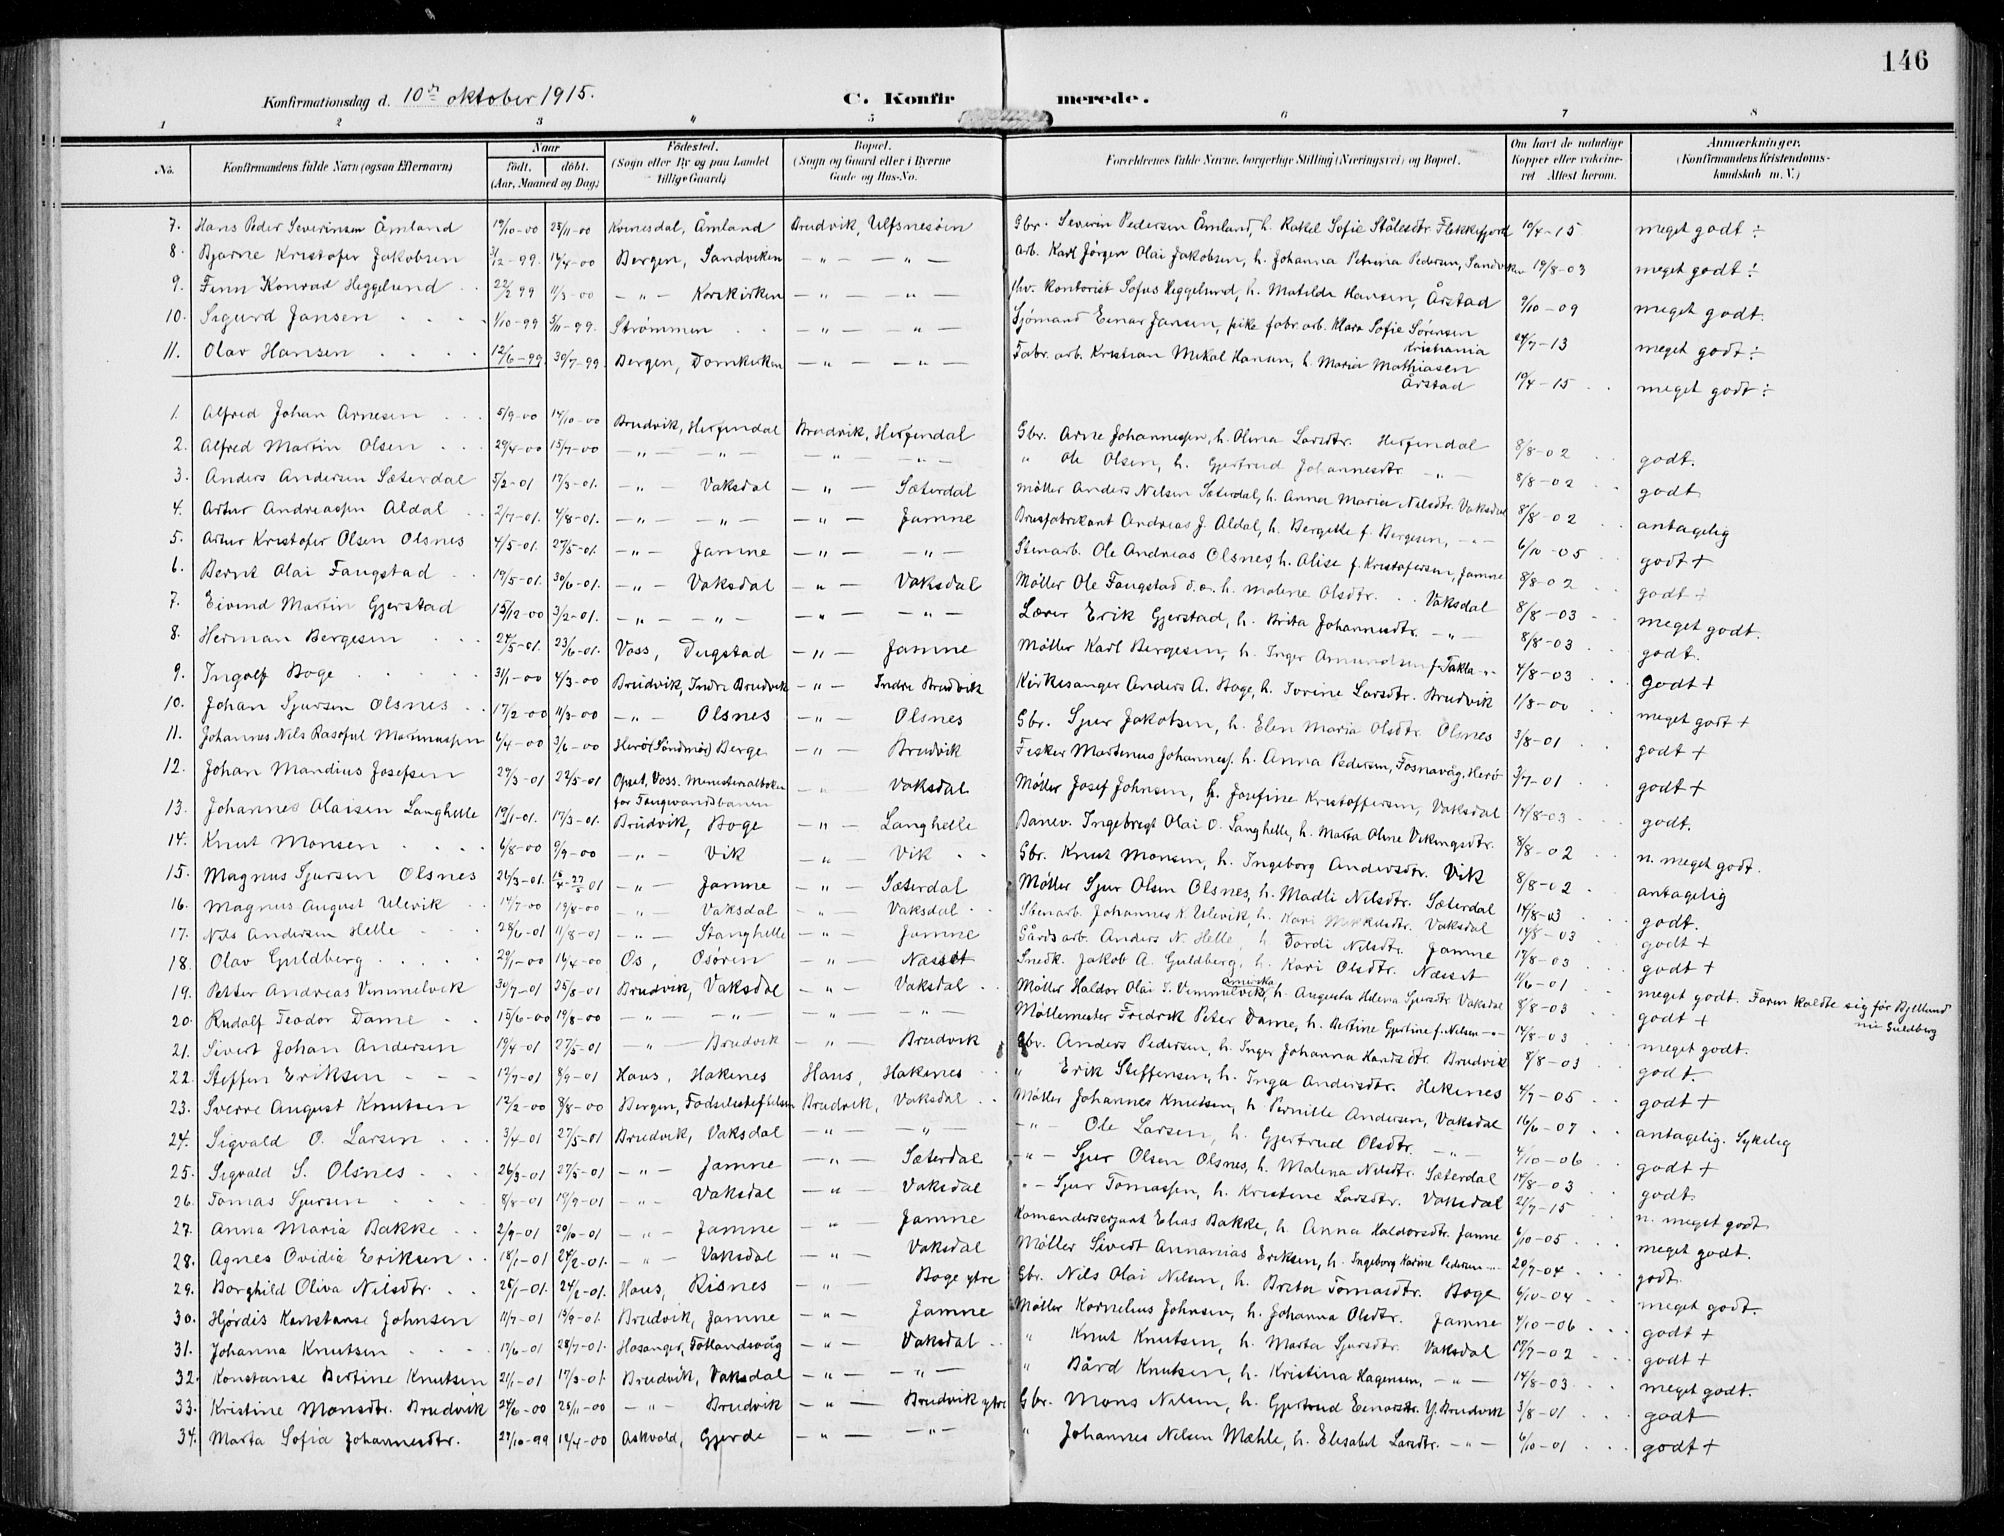 146
Konfirmationsdag d. 10de oktober 1915.
C. Konfirmerede.
1 2 3 4 5 6 7 8
No. Konfirmandens fulde Navn (ogsaa Efternavn) Naar født. døbt. (Aar, Maaned og Dag) Fødested. (Sogn eller By og paa Landet tillige Gaard) Bopæl. (Sogn og Gaard eller i Byerne Gade og Hus-No. Forældrenes fulde Navne, borgerlige Stilling (Næringsvei) og Bopæl. Om havt de naturlige Kopper eller vakcineret. Attest herom. Anmærkninger. (Konfirmandens Kristendomskundskab m. V.)
7. Hans Peder Severinsen Åmland 19/10-00 25/11-00 Kvinesdal, Åmland Brudvik, Ulfsnesøen Gbr. Severin Pedersen Åmland, h. Rakel Sofie Stålesdtr. Flekkefjord 19/4-15 meget godt ÷
8. Bjarne Kristofer Jakobsen 3/12-99. 16/4-00 Bergen, Sandviken -"- -"- arb. Karl Jörgen Olai Jakobsen, h. Johanna Petrina Pedersen, Sandviken 19/8-03 meget godt ÷
9. Finn Konrad Heggelund 22/2 99 11/3-00 -"- Korskirken -"- -"- fhv. kontorist Sofus Heggelund, h. Matilde Hansen, Årstad 9/10-09 meget godt.
10. Sigurd Jansen 1/10-99 5/11-99. Strömmen -"- -"- Sjömand Einar Jansen, pike fabr. arb. Klara Sofie Sörensen Kristiania 24/7-13 meget godt ÷
11. Olav Hansen 12/6-99 30/7-99 Bergen, Domkirken -"- -"- Fabr. arb. Kristian Mikal Hansen, h. Maria Mathiasen Årstad 19/4-15 meget godt ÷
1. Alfred Johan Arnesen 5/9-00 14/10-00 Brudvik, Herfindal Brudvik, Herfindal Gbr. Arne Johannessen, h. Olina Larsdtr. Herfindal 8/8-02 godt.
2. Alfred Martin Olsen 29/4-00 15/7-00 -"- -"- -"- -"- " Ole Olsen, h. Gjertrud Johannesdtr. -"- 8/8-02 godt
3. Anders Andersen Sæterdal 5/2-01 17/3-01. -"- Vaksdal -"- Sæterdal Möller Anders Nilsen Sæterdal, h. Anna Maria Nilsdtr. Vaksdal 8/8-02 antagelig
4. Artur Andreassen Aldal 2/7-01. 4/8-01. -"- -"- -"- Jamne Brusfabrikant Andreas J. Aldal, h. Bergitte f. Bergesen, -"- 6/10-05 godt +
5. Artur Kristofer Olsen Olsnes 4/5-01. 27/5-01. -"- Jamne -"- -"- Stenarb. Ole Andreas Olsnes, h. Alise f. Kristofersen, Jamne 8/8-02 godt +
6. Bernt Olai Fangstad 19/5-01. 30/6-01. -"- Vaksdal -"- Vaksdal Möller Ole Fangstad d.o. h. Malene Olsdtr. Vaksdal 8/8-03 meget godt.
7. Eivind Martin Gjerstad 15/12-00 3/2-01. -"- -"- -"- -"- Lærer Erik Gjerstad, h. Brita Johannesdtr. -"- 8/8-03 godt.
8. Herman Bergesen 24/5-01. 23/6-01. Voss, Dugstad -"- Jamne Möller Karl Bergesen, h. Inger Amundsen f. Takla -"- 4/8-03 godt +
9. Ingolf Boge 31/1-00 4/3-00 Brudvik, Indre Brudvik -"- Indre Brudvik Kirkesanger Anders A. Boge, h. Torine Larsdtr. Brudvik 1/8-00 meget godt +
10. Johan Sjursen Olsnes 17/2-00 11/3-00 -"- Olsnes -"- Olsnes Gbr. Sjur Jakobsen, h. Elen Maria Olsdtr. Olsnes 3/8-01 godt +
11. Johannes Nils Rasoful Martinussen 6/4-00 3/6-00 Herö (Söndmör) Berge -"- Brudvik Fisker Martinus Johanness. h. Anna Pedersen, Fosnavåg, Herö 3/7-01 godt +
12. Johan Mandius Josefsen 29/3-01 22/5-01 Opset, Voss. Ministerialboken for Taugevandsbanen -"- Vaksdal Möller Josef Johnsen, h. Josefine Kristoffersen, Vaksdal 14/8-03 godt.
13. Johannes Olaisen Langhelle 19/1-01. 17/3-01. Brudvik, Boge -"- Langhelle Banev. Ingebregt Olai O. Langhelle, h. Marta Oline Vikingsdtr. 8/8-02 n. meget godt.
14. Knut Monsen 6/8-00 9/9-00 -"- Vik -"- Vik Gbr. Knut Monsen, h. Ingeborg Andersdtr. Vik 8/8-02 antagelig
15. Magnus Sjursen Olsnes 26/3-01. 15/4-27/5 01 -"- Jamne -"- Sæterdal Möller Sjur Olsen Olsnes, h. Madli Nilsdtr. Sæterdal 14/8-03 godt.
16. Magnus August Ulevik 14/7-00 19/8-00 -"- Vaksdal -"- Vaksdal Stenarb. Johannes K. Ulevik, h. Kari Mikkelsdtr. Vaksdal 14/8-03 godt +
17. Nils Andersen Helle 28/6-01 11/8-01 -"- Stanghelle -"- Jamne Gårdsarb. Anders N. Helle, h. Tordi Nilsdtr. Jamne 17/8-03 godt +
18. Olav Guldberg 29/1-00 16/4-00 Os, Osören -"- Næsset Snedk. Jakob A. Guldberg, h. Kari Olsdtr. Næsset 11/6-01 meget godt. Faren kaldte sig för Bjelland nu Guldberg
19. Petter Andreas Vimmelvik 30/7-01 25/8-01 Brudvik, Vaksdal -"- Vaksdal Möller Haldor Olai J. Vimmelvik, Amerika h. Augusta Helena Sjursdtr Vaksdal 8/8-03 godt +
20. Rudolf Teodor Dame 15/6-00 19/8-00 -"- -"- -"- -"- Möllemester Fredrik Peter Dame, h. Bertine Gjertine f. Nilsen -"- 14/8-03 meget godt.
21. Sivert Johan Andersen 19/4-01 27/5-01 -"- Brudvik -"- Brudvik Gbr. Anders Pedersen, h. Inger Johanna Hansdtr. Brudvik 8/8-03 godt.
22. Steffen Eriksen 13/7-01 8/9-01 Haus, Hakenes Haus, Hakenes " Erik Steffensen, h. Inga Andersdtr. Hekenes 4/7-05 godt +
23. Sverre August Knutsen 12/2-00 8/8-00 Bergen, Födselsstiftelsen Brudvik, Vaksdal Möller Johannes Knutsen, h. Pernille Andersen, Vaksdal 16/6-07 antagelig. Sykelig
24. Sigvald O. Larsen 3/4-01 27/5-01 Brudvik, Vaksdal -"- -"- -"- Ole Larsen, h. Gjertrud Olsdtr. -"- 4/10-06 godt +
25. Sigvald S. Olsnes 26/3-01 27/5-01 -"- Jamne -"- Sæterdal -"- Sjur Olsen Olsnes, h. Malena Nilsdtr. Sæterdal 14/8-03 godt
26. Tomas Sjursen 8/8-01 19/9-01 -"- Vaksdal -"- Vaksdal "- Sjur Tomassen, h. Kristine Larsdtr. Vaksdal 21/7-15 n. meget godt
27. Anna Maria Bakke 2/9-01 20/10-01 -"- Jamne -"- Jamne Komandersersjant Elias Bakke, h. Anna Haldorsdtr. Jamne 6/10-05 meget godt.
28. Agnes Ovidia Eriksen 18/1-01 24/2-01. -"- Vaksdal -"- Vaksdal Möller Sivert Annanias Eriksen, h. Ingeborg Karine Pedersen -"- 20/7-04 godt.
29. Borghild Oliva Nilsdtr. 25/1-01. 24/2-01. Haus, Risnes -"- Boge ytre Gbr. Nils Olai Nilsen, h. Brita Tomasdtr. Boge 6/10-04 meget godt.
30. Hjördis Konstanse Johnsen 11/7-01 15/9-01. Brudvik, Jamne -"- Jamne Möller Kornelius Johnsen, h. Johanna Olsdtr. Jamne 4/10-06 godt +
31. Johanna Knutsen 17/6-01 28/7-01. Hosanger, Fotlandsvåg -"- Vaksdal " Knut Knutsen, h. Marta Sjursdtr. Vaksdal 17/7-02 godt +
32. Konstanse Bertine Knutsen 21/1-01 17/3-01. Brudvik, Vaksdal -"- -"- " Bård Knutsen, h. Kristina Hagensen, -"- 14/8-03 meget godt.
33. Kristine Monsdtr. Brudvik 24/6-00 25/11-00 -"- Brudvik -"- Brudvik ytre Gbr. Mons Nilsen, h. Gjertrud Einarsdtr. Y. Brudvik 3/8-01 godt
34. Marta Sofia Johannesdtr. 27/10-99 12/4-00 Askvold, Gjerde -"- -"- " Johannes Nilsen Mæhle, h. Elisabet Larsdtr. -"- 6/10-01 godt +